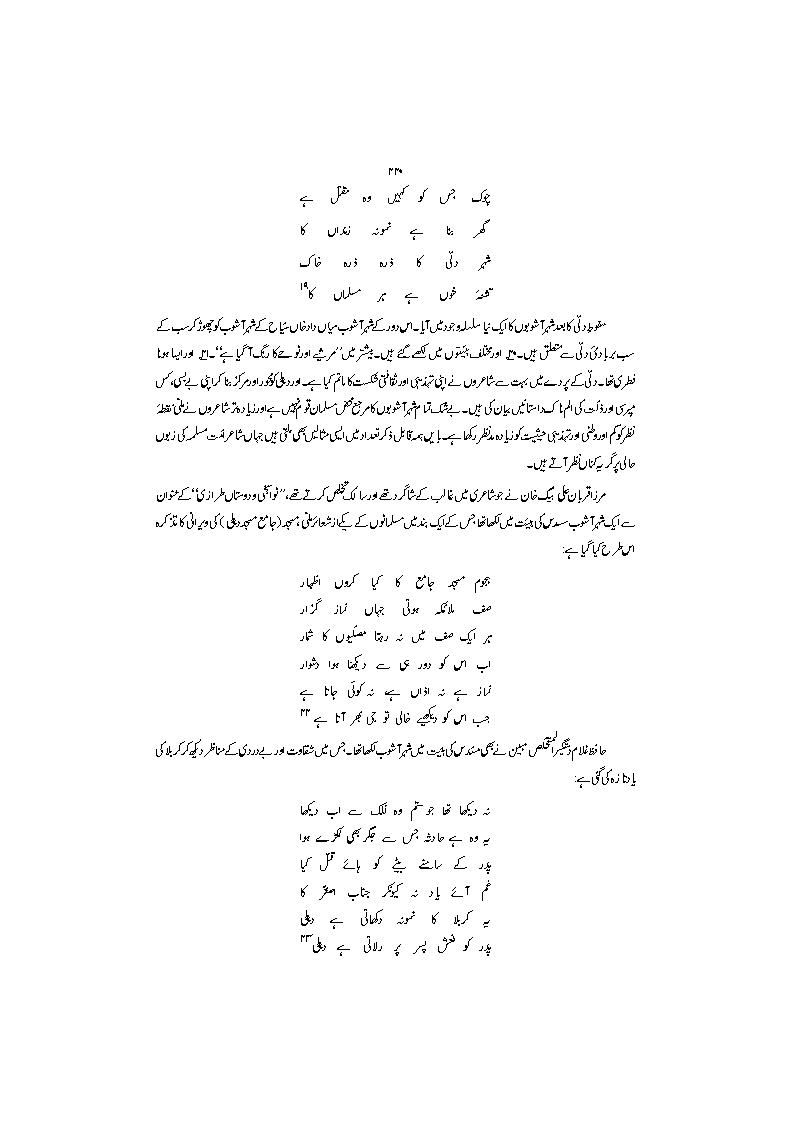 ۴۴۰
چوک جس کو کہیں وہ مقتل ہے
گھر بنا ہے نمونہ زنداں کا
شہر دلّی کا ذرہ ذرہ خاک
تشنۂ خوں ہے ہر مسلماں کا۱۹
سقوطِ دلّی کا بعد شہر آشوبوں کا ایک نیا سلسلہ وجود میں آیا۔ اس دور کے شہر آشوب میاں داد خاں سیّاح کے شہر آشوب کو چھوڑ کر سب کے
سب بربادیٔ دلّی سے متعلق ہیں۔۲۰ اور مختلف ہیئتوں میں لکھے گئے ہیں۔ بیشتر میں ’’مرثیے اور نوحے کا رنگ آگیا ہے‘‘۔۲۱ اور ایسا ہونا
فطری تھا۔ دلّی کے پردے میں بہت سے شاعروں نے اپنی تہذیبی اور ثقافتی شکست کا ماتم کیا ہے۔ اور دہلی کو محور اور مرکز بنا کر اپنی بے بسی، کس
مپرسی اور ذلت کی الم ناک داستانیں بیان کی ہیں۔ بے شک تمام شہر آشوبوں کا مرجع محض مسلمان قوم نہیں ہے اور زیادہ تر شاعروں نے ملّی نقطۂ
نظر کو کم اور وطنی اور تہذیبی حیثیت کو زیادہ مدِّنظر رکھا ہے۔ بایں ہمہ قابل ذکر تعداد میں ایسی مثالیں بھی ملتی ہیں جہاں شاعر اُمت مسلمہ کی زبوں
حالی پر گریہ کناں نظر آتے ہیں۔
مرزا قربان علی بیگ خان نے جو شاعری میں غالب کے شاگرد تھے اور سالک تخلص کرتے تھے، ’’نواسنجی و دوستاں طرازی‘‘ کے عنوان
سے ایک شہر آشوب مسدس کی ہیئت میں لکھا تھا جس کے ایک بند میں مسلمانوں کے یکے از شعائر ملّی، مسجد (جامع مسجد دہلی) کی ویرانی کا تذکرہ
اس طرح کیا گیا ہے:
ہجوم مسجد جامع کا کیا کروں اظہار
صف ملائکہ ہوتی جہاں نماز گزار
ہر ایک صف میں نہ رہتا مصلیوں کا شمار
اب اس کو دور ہی سے دیکھنا ہوا دشوار
نماز ہے نہ اذاں ہے نہ کوئی جاتا ہے
جب اس کو دیکھیے خالی تو جی بھر آتا ہے۲۲
حافظ غلام دستگیر المتخلص مبین نے بھی مسدس کی ہیئت میں شہر آشوب لکھا تھا۔ جس میں شقاوت اور بے دردی کے مناظر دیکھ کر کربلا کی
یاد تازہ کی گئی ہے:
نہ دیکھا تھا جو ستم وہ فلک سے اب دیکھا
یہ وہ ہے حادثہ جس سے جگر بھی ٹکڑے ہوا
پدر کے سامنے بیٹے کو ہائے قتل کیا
غم آئے یاد نہ کیونکر جناب اصغرؑ کا
یہ کربلا کا نمونہ دکھاتی ہے دہلی
پدر کو نعش پسر پر رلاتی ہے دہلی۲۳